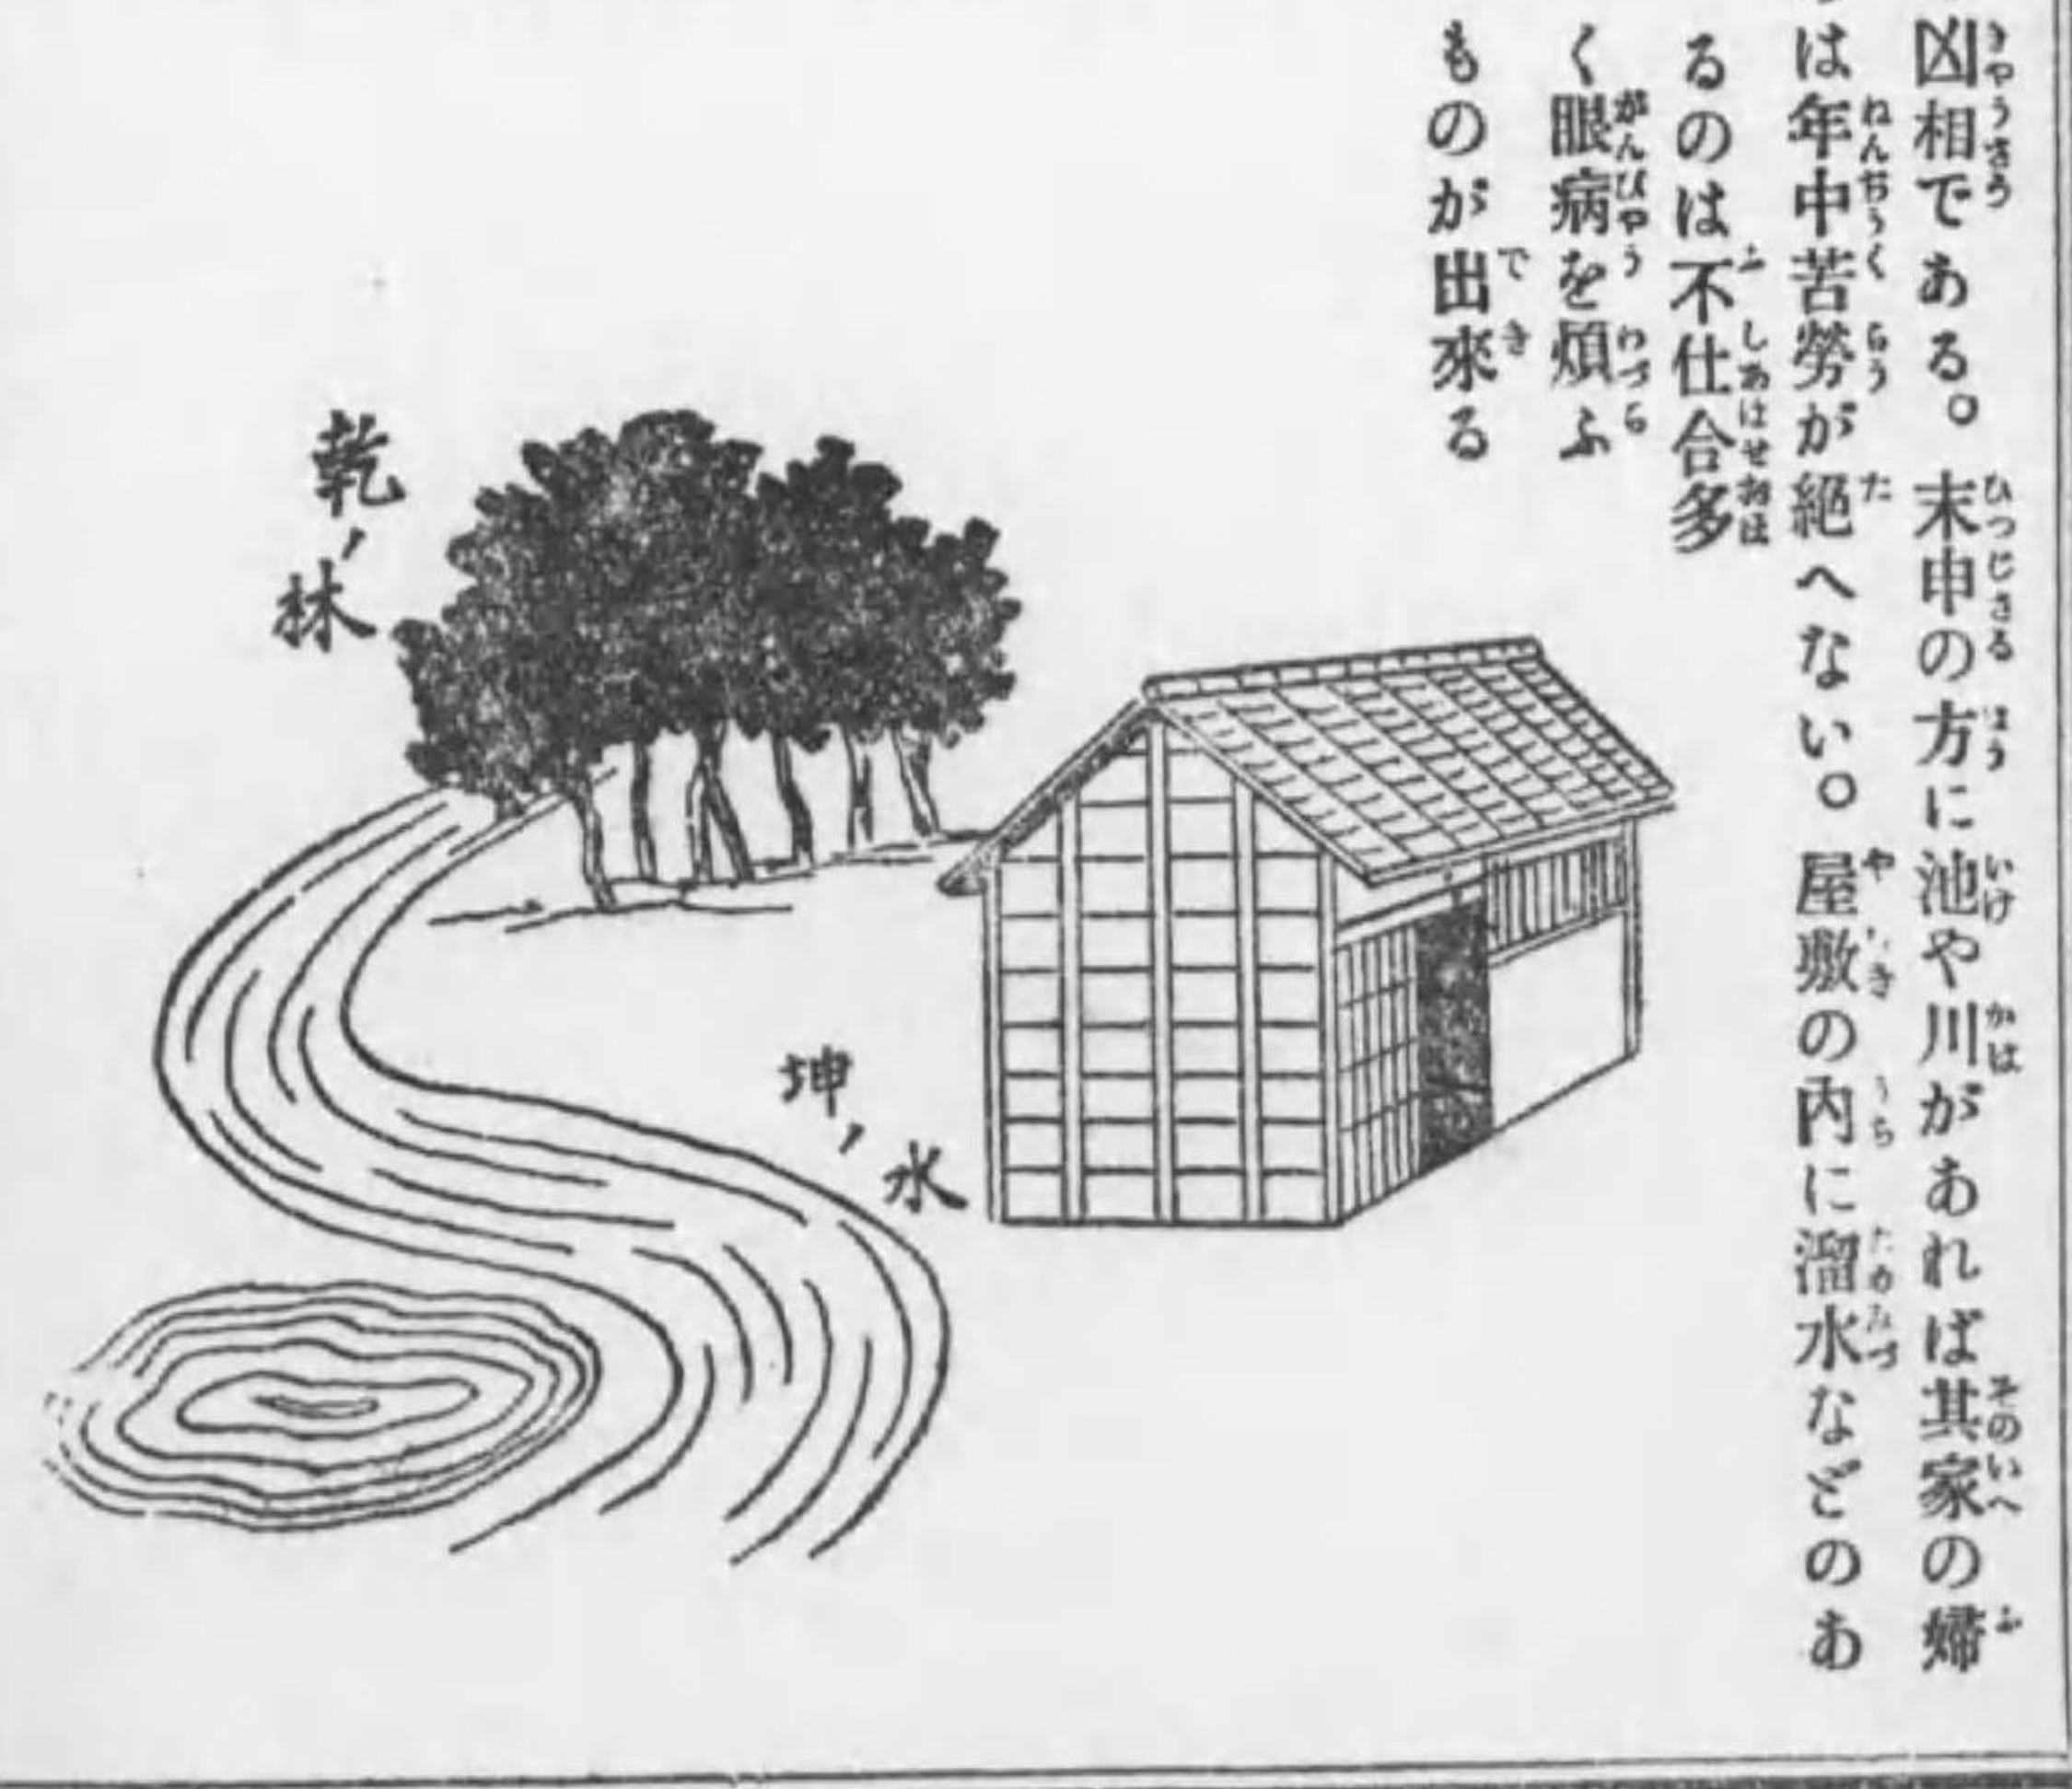 凶相である。末申の方に池や川があれば其家の婦
は年中苦勞が絕へない。屋敷の內に溜水などのあ
るのは不仕合多
く眼病を煩ふ
ものが出來る
乾、林
坤、水